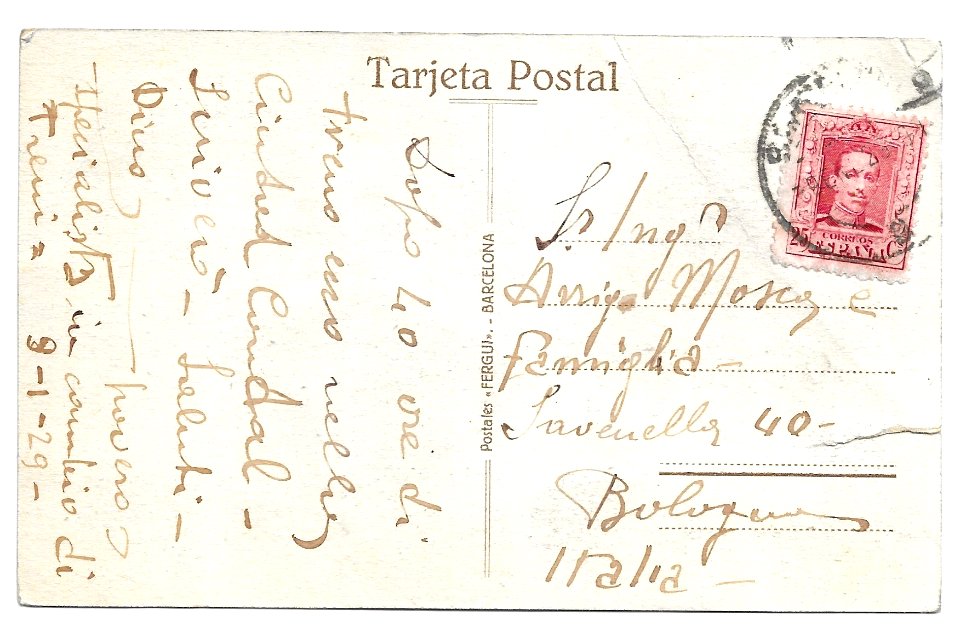 Tarjeta Postal
Dopo 40 ore di
treno eccomi nella
Ciudad Condal -
Scriverò - Saluti -
Dino
- povero
specialista in cambio di
Treni =
9-1-29-
Postales «FERGUI». - BARCELONA
25 CORREOS C
ESPAÑA
Sr Ingr
Arrigo Mosca e
Famiglia -
Savenella 40 -
Bologna
Italia -